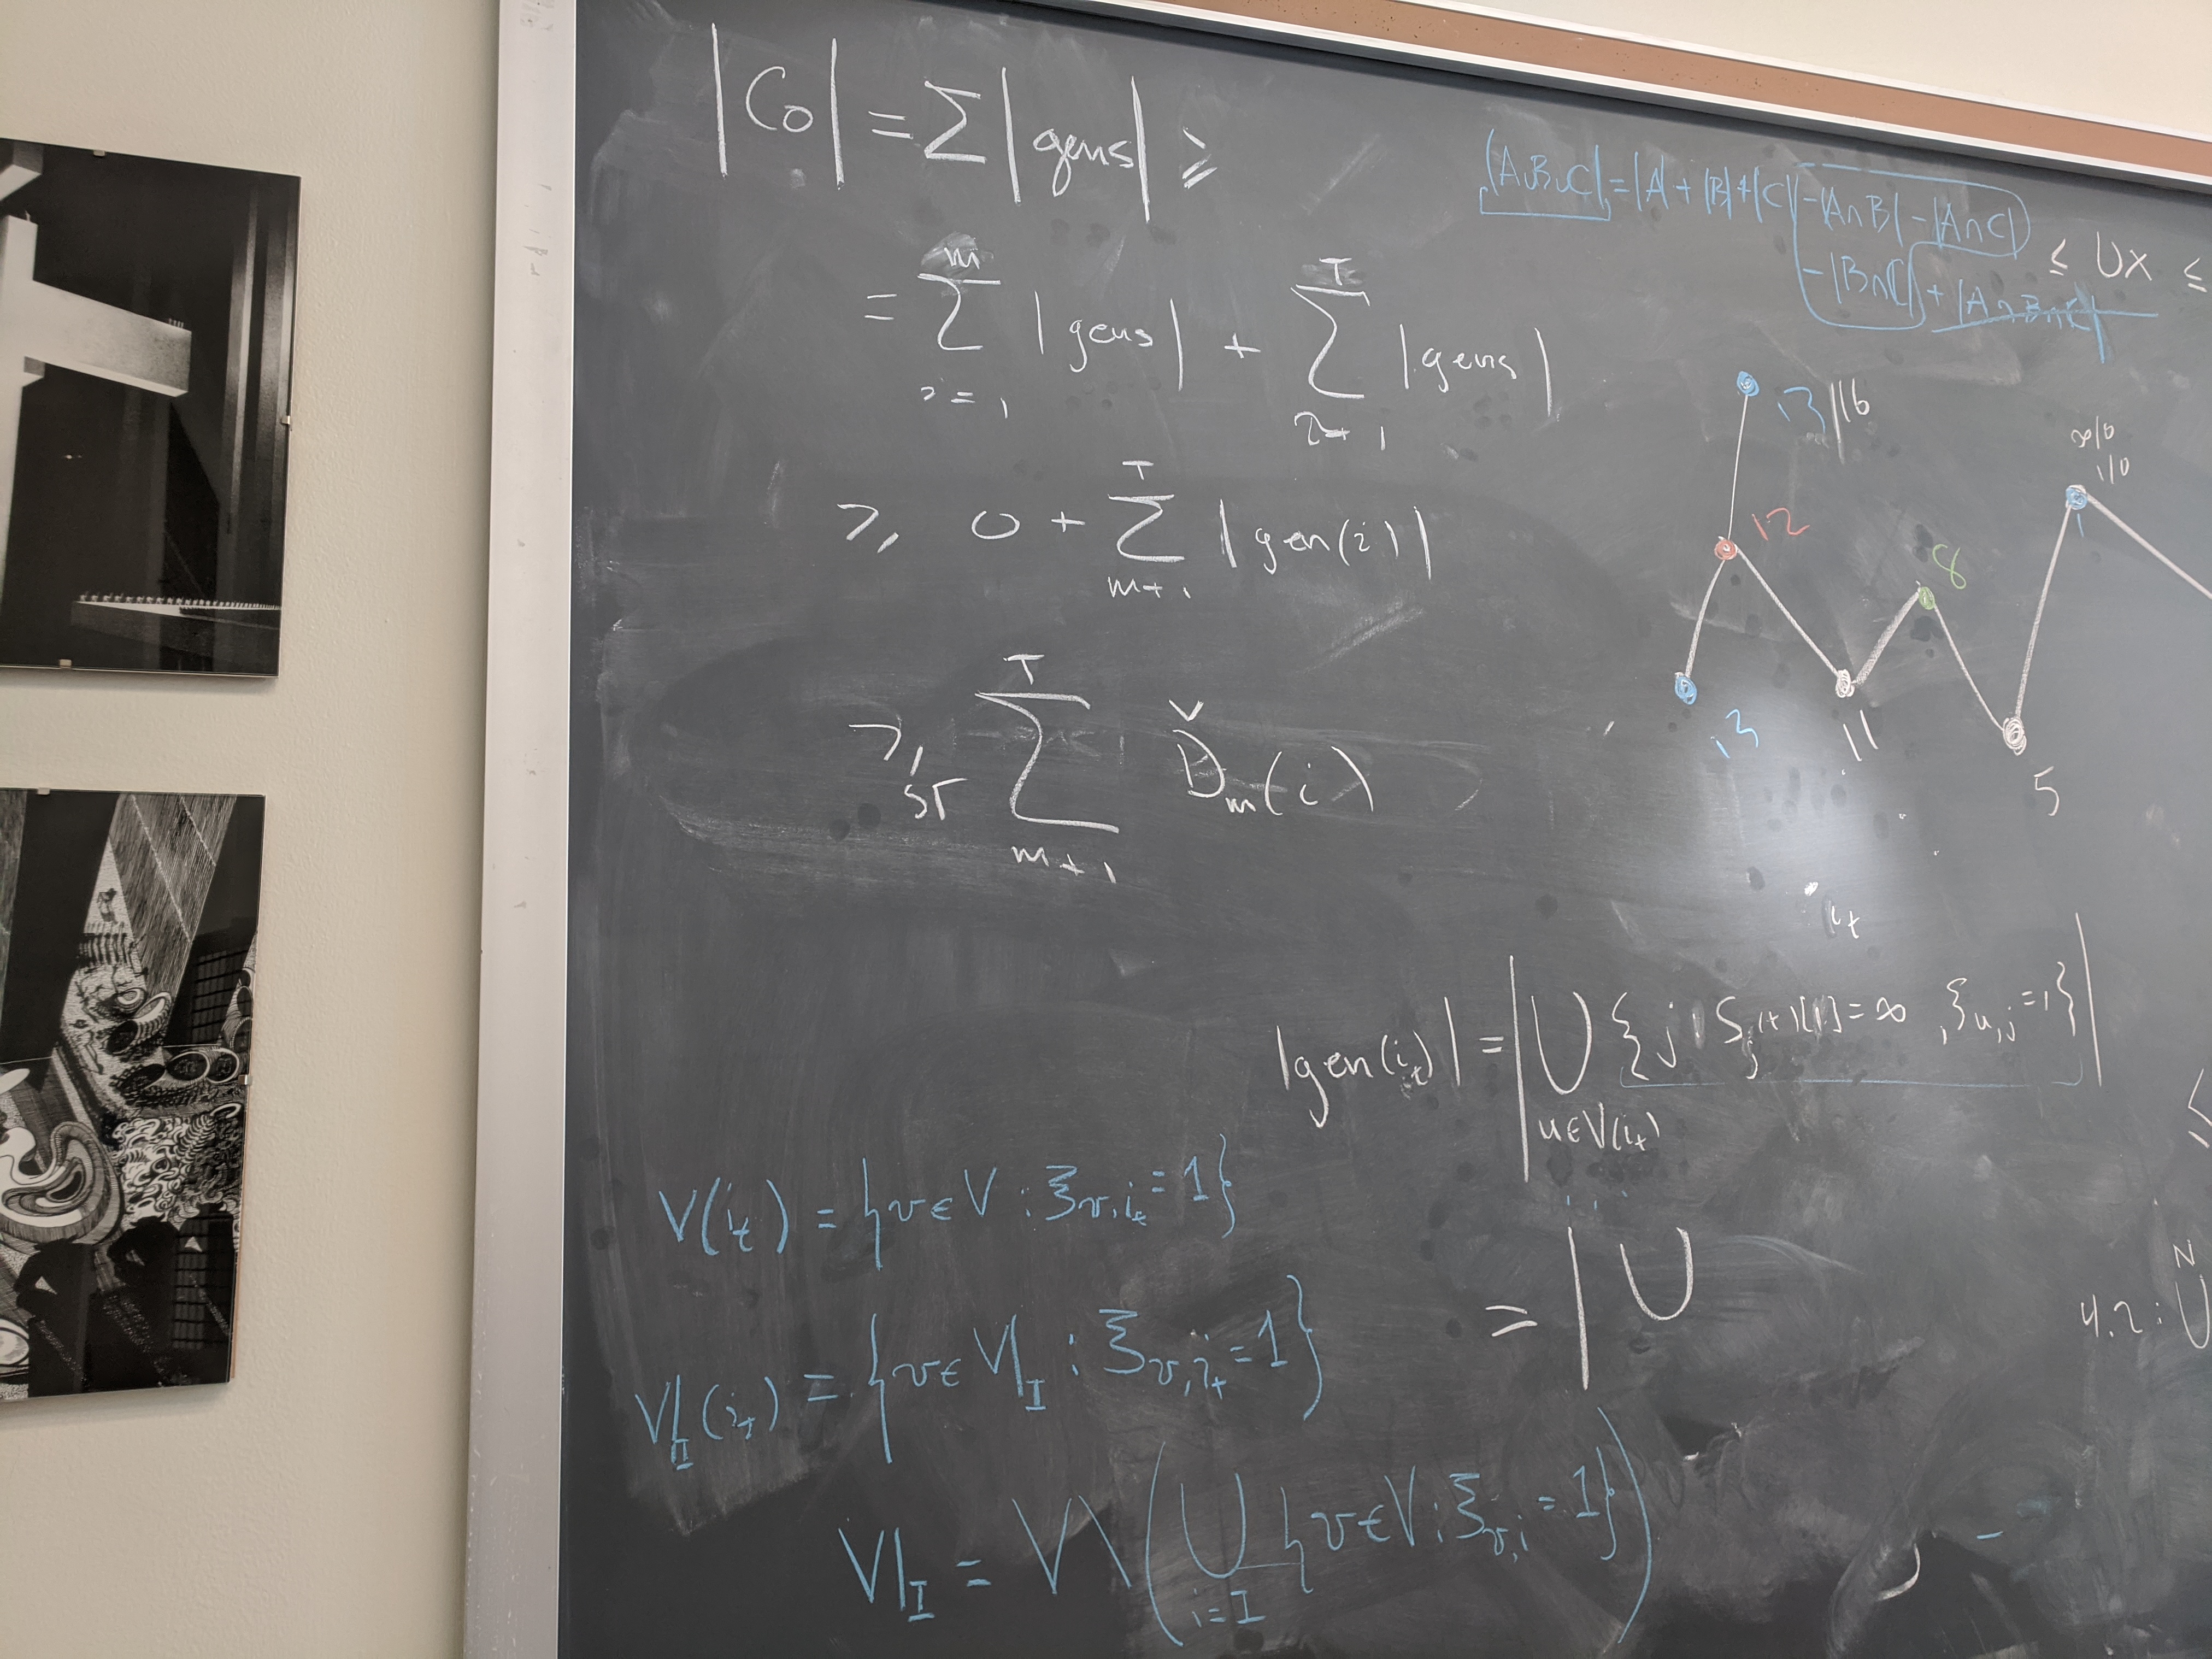 |C₀| = Σ |gens| ≥
= Σ_{i=1}^{m} |gens| + Σ_{2+1}^{T} |gens|
≥ 0 + Σ_{m+1}^{T} |gen(i)|
≥_{ST} Σ_{m+1}^{T} Ď_m(i)
|A∪B∪C| = |A| + |B| + |C| - |A∩B| - |A∩C|
- |B∩C| + |A∩B∩C|
≤ UX ≤
13 | 16
∞|0
1|0
12
8
1
13
11
5
i_t
|gen(i_t)| = | ⋃_{u∈V(i_t)} { j : S_j = ∞ , ξ_{u,j} = 1 } |
≤
V(i_t) = {v ∈ V : ξ_{v,i_t} = 1}
= | ⋃
N
4.2 : U
V|_I (i_t) = {v ∈ V|_I : ξ_{v,i_t} = 1}
V|_I = V \ ( ⋃_{i=I} {v ∈ V : ξ_{v,i} = 1} )